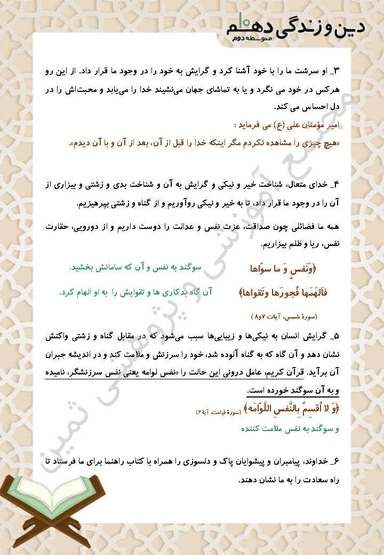 دین و زندگی دهم
متوسطه دوم
۳_ او سرشت ما را با خود آشنا کرد و گرایش به خود را در وجود ما قرار داد. از این رو
هرکس در خود می نگرد و یا به تماشای جهان می‌نشیند خدا را می‌یابد و محبت‌اش را در
دل احساس می کند.
امیر مؤمنان علی (ع) می فرماید :
«هیچ چیزی را مشاهده نکردم مگر اینکه خدا را قبل از آن، بعد از آن و با آن دیدم».
۴_ خدای متعال، شناخت خیر و نیکی و گرایش به آن و شناخت بدی و زشتی و بیزاری از
آن را در وجود ما قرار داد، تا به خیر و نیکی روآوریم و از گناه و زشتی بپرهیزیم.
همه ما فضائلی چون صداقت، عزت نفس و عدالت را دوست داریم و از دورویی، حقارت
نفس، ریا و ظلم بیزاریم.
﴿وَنَفسٍ وَ ما سوّاها سوگند به نفس و آن که سامانش بخشید.
فَاَلهَمَها فُجورَها وَتَقواها﴾ آن گاه بدکاری ها و تقوایش را به او الهام کرد.
(سورهٔ شمس، آیات ۷و۸)
۵_ گرایش انسان به نیکی‌ها و زیبایی‌ها سبب می‌شود که در مقابل گناه و زشتی واکنش
نشان دهد و آن گاه که به گناه آلوده شد، خود را سرزنش و ملامت کند و در اندیشه جبران
آن برآید. قرآن کریم، عامل درونی این حالت را «نفس لوامه یعنی نفس سرزنشگر، نامیده
و به آن سوگند خورده است.
﴿وَ لا اُقسِمُ بِالنَّفسِ اللَّوّامَه﴾ (سورهٔ قیامت، آیهٔ ۲)
و سوگند به نفس ملامت کننده
۶_ خداوند، پیامبران و پیشوایان پاک و دلسوزی را همراه با کتاب راهنما برای ما فرستاد تا
راه سعادت را به ما نشان دهند.